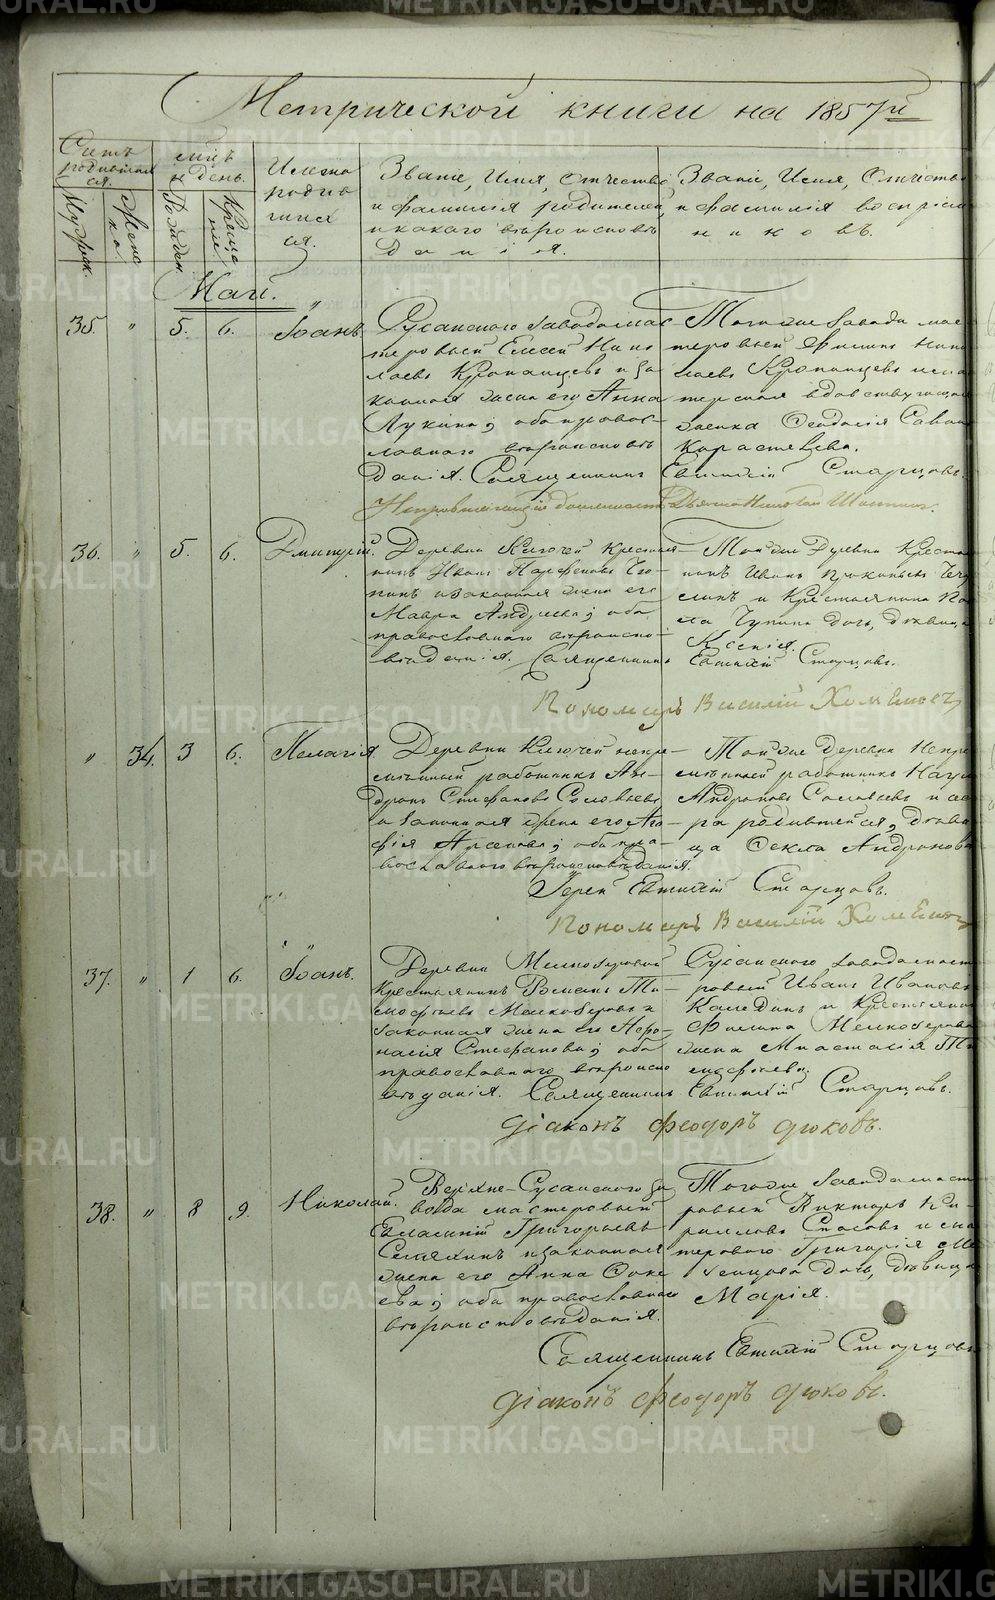 Метрической книги на 1857й
Счетъ родившихся.
Мужск.
Женска.
мцъ и день.
Рожден.
Крещения
Имена родившихся.
Званіе, Имя, Отчество
и фамилія родителей,
и какаго вѣроисповѣ
данія.
Званіе, Имя, Отчество
и фамилія воспріем
никовъ.
Май.
35. " 5. 6. Іоанъ
Сусанского завода мас
теровый Елисей Нико
лаевъ Кропанцевъ и за
конная жена его Анна
Лукина; оба правос
лавнаго вѣроисповѣ
данія. Священникъ Евтихій Старцовъ.
Тогоже завода мас
теровый Филипъ Нико
лаевъ Кропанцевъ и мас
терская вдовствующая
женка Феодосія Савина
Карастелева.
Исправляющій должность Дьячка Николай
36. " 5. 6. Дмитрій.
Деревни Ключей кресть
нинъ Иванъ Парфеновъ Чу
пинъ и законная жена его
Мавра Андреева; оба
православнаго вѣроиспо
вѣданія. Священникъ Евтихій Старцовъ.
Тойже Деревни Кресть
нинъ Иванъ Прокопьевъ
и Крестьянина
Чупина дочь, дѣвица
Ксенія.
Пономарь Василій Хомѣнковъ
" 34. 3 6. Пелагія.
Деревни Ключей непре
мѣнный работникъ Ан
дронъ Стефановъ Соловьевъ
и законная жена его Ага
фія Арсенова; оба пра
вославнаго вѣроисповѣданія.
Тойже Деревни Непре
мѣнный работникъ Наумъ
Андроновъ Соловьевъ и сес
ра родившейся, дѣви
ца Фекла Андронова
Іерей Евтихій Старцовъ.
Пономарь Василій Хомѣнковъ
37. " 1 6. Іоанъ.
Деревни Мелкозеровой
Крестьянинъ Романъ Ти
мофѣевъ Мелкозеровъ и
законная жена его Афо
насія Стефанова; оба
православнаго вѣроиспо
вѣданія. Священникъ Евтихій Старцовъ.
Сусанского завода масте
ровый Иванъ Ивановъ
Калединъ и Крестьянина
Филипа Мелкозерова
жена Анастасія Ти
мофѣева.
Діаконъ Феодоръ Дюковъ.
38. " 8 9. Николай.
Верхне-Сусанского за
вода мастеровый
Евлампій Григорьевъ
Семяхинъ и законная
жена его Анна Фоке
ева; оба православнаго
вѣроисповѣданія.
Тогоже завода масте
ровый Викторъ Ки
рилловъ Спасовъ и мас
тероваго Григорія
дочь, дѣвица
Марія.
Священникъ Евтихій Старцовъ
Діаконъ Феодоръ Дюковъ.
METRIKI.GASO-URAL.RU